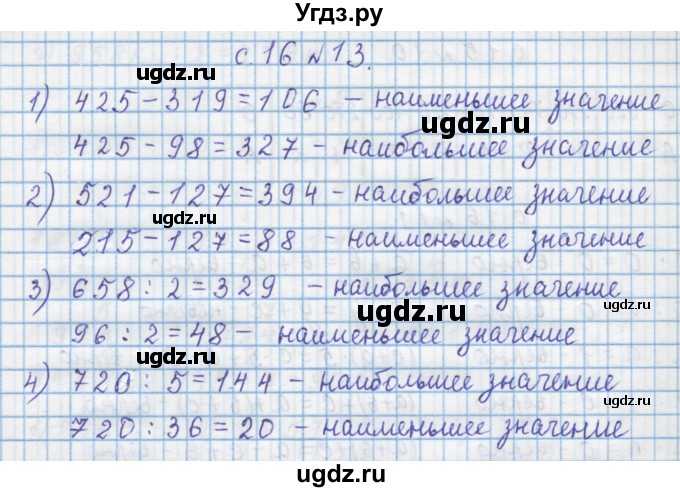 Угдз.ру
с. 16 № 13.
ugdz.ru
1) 425 – 319 = 106 – наименьшее значение
ugdz.ru
425 – 98 = 327 – наибольшее значение
2) 521 – 127 = 394 – наибольшее значение
ugdz.ru
215 – 127 = 88 – наименьшее значение
3) 658 : 2 = 329 – наибольшее значение
ugdz.ru
96 : 2 = 48 – наименьшее значение
ugdz.ru
4) 720 : 5 = 144 – наибольшее значение
720 : 36 = 20 – наименьшее значение
ugdz.ru